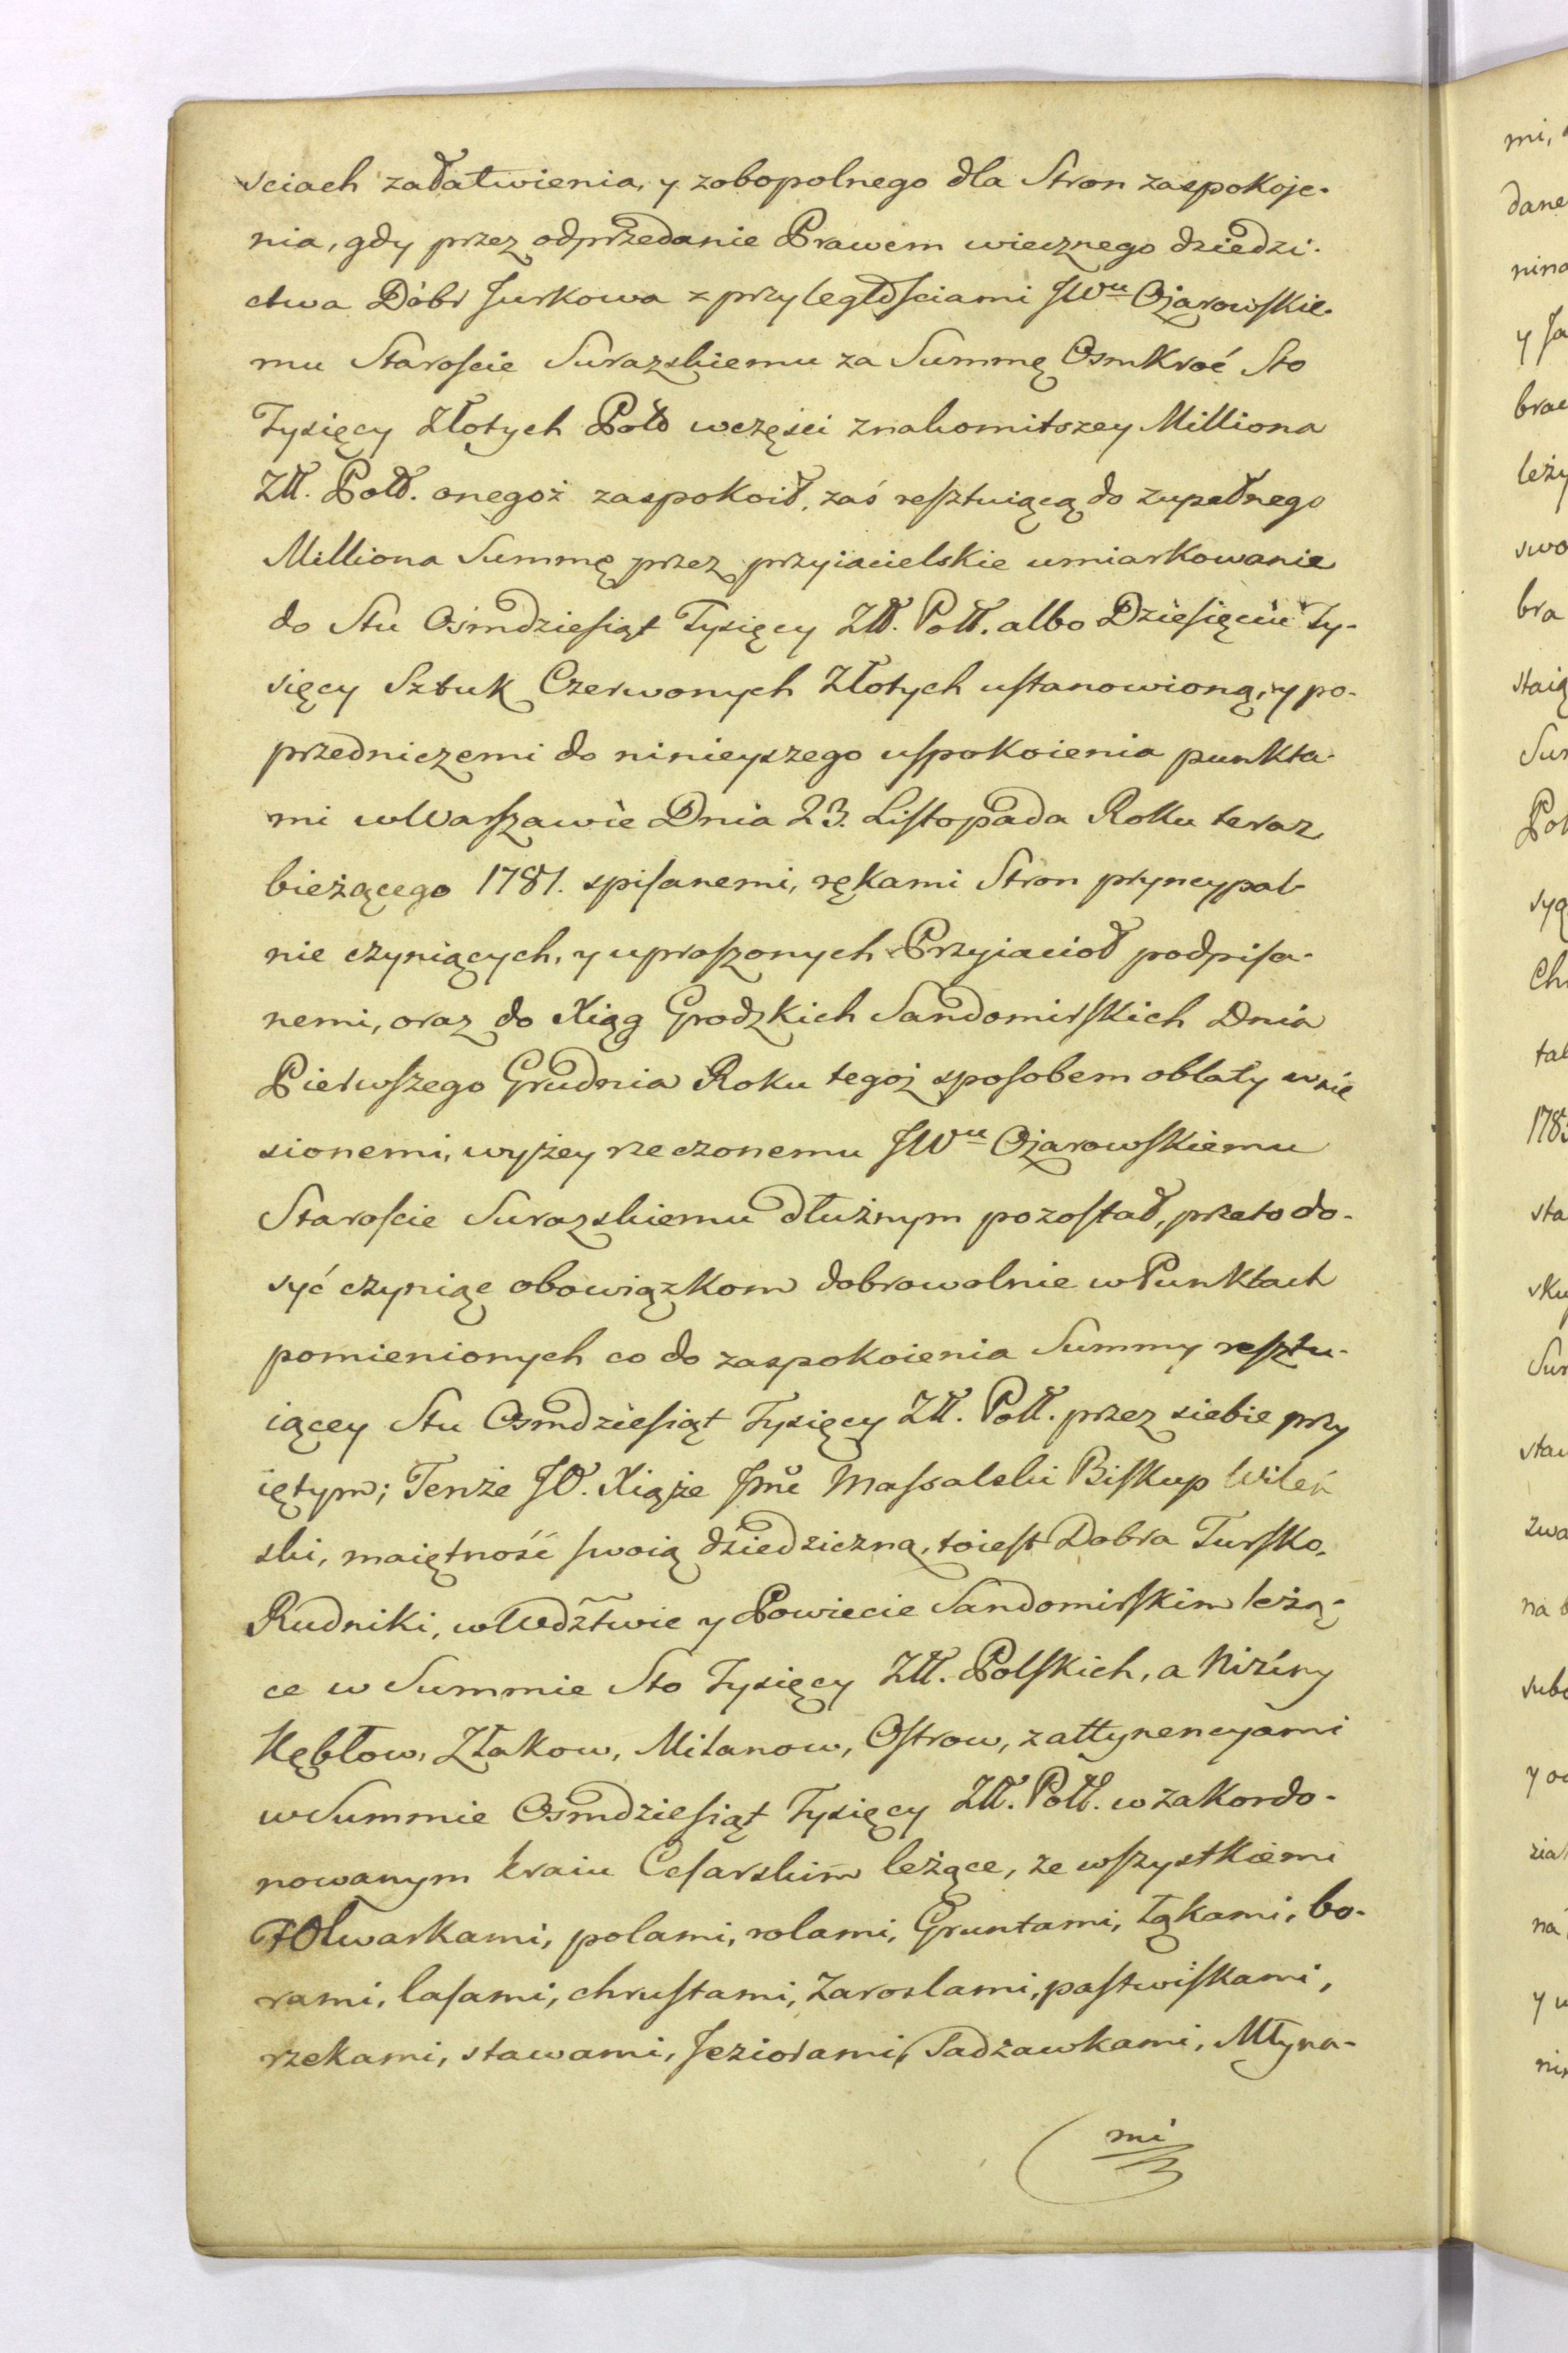 sciach załatwienia, y zobopolnego dla Stron zaspokoje-
nia, gdy przez odprzedanie Prawem wiecznego dziedzi-
ctwa Dóbr Jurkowa z przyległościami JWu Ożarowskie-
mu Staroscie Surazskiemu za Summę Osmkroć Sto
Tysięcy Złotych Pol w części znakomitszey Milliona
Zll. Poll. onegoż zaspokoił, zaś resztuiącą do zupełnego
Milliona Summę przez przyiacielskie umiarkowanie
do Stu Ośmdziesiąt Tysięcy Zll. Poll. albo Dziesięciu Ty-
sięcy Sztuk Czerwonych Złotych ustanowioną, y po-
przedniczemi do ninieyszego uspokoienia punkta-
mi w Warszawie Dnia 23. Listopada Roku teraz
bieżącego 1781. spisanemi, rękami Stron pryncypal-
nie czyniących, y uproszonych Przyiacioł podpisa-
nemi, oraz do Xiąg Grodzkich Sandomirskich Dnia
Pierwszego Grudnia Roku tegoż sposobem oblaty wnie
sionemi, wyżey rzeczonemu JWu Ożarowskiemu
Staroscie Surazskiemu dłużnym pozostał, przeto do-
syć czyniąc obowiązkom dobrowolnie w Punktach
pomienionych co do zaspokoienia Summy resztu-
iącey Stu Osmdziesiąt Tysięcy Zll. Poll. przez siebie przy
iętym; Tenże JO. Xiąże Jmć Massalski Biskup Wileń
ski, maiętność swoią dziedziczną, toiest Dobra Tursko,
Rudniki, w Wdztwie y Powiecie Sandomirskim leżą-
ce w Summie Sto Tysięcy Zll. Polskich, a Niziny
Kębłow, Złakow, Milanow, Ostrow, z attynencyami
w Summie Osmdziesiąt Tysięcy Zll. Poll. w zakordo-
nowanym kraiu Cesarskim leżące, ze wszystkiemi
Folwarkami, polami, rolami, Gruntami, Łąkami, bo-
rami, lasami, chrustami, Zaroslami, pastwiskami,
rzekami, stawami, Jeziorami, Sadzawkami, Młyna-
mi
mi,
dane
nina
y Ja
brac
leży
swo
bra
staią
Sur
Pol
syą
Ch
tal
178
sta
sku
Sur
stau
zwa
na
subo
y
zia
na
y
ni